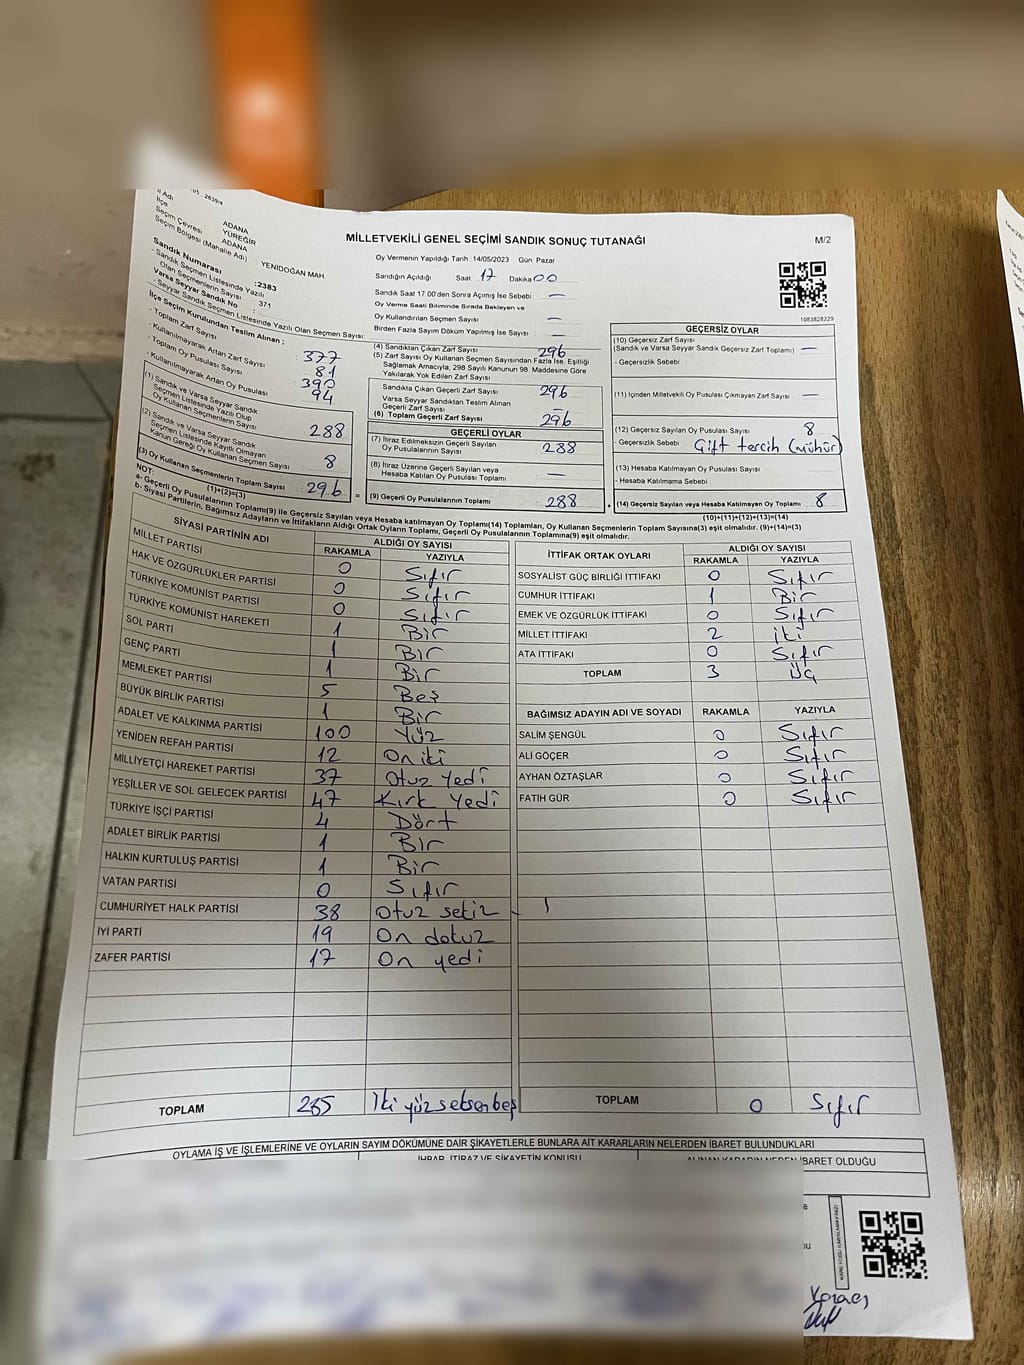 ADANA
YÜREĞİR
ADANA
YENİDOĞAN MAH.
İl Adı
İlçe
Seçim Çevresi
Seçim Bölgesi (Mahalle Adı)
MİLLETVEKİLİ GENEL SEÇİMİ SANDIK SONUÇ TUTANAĞI
M/2
Oy Vermenin Yapıldığı Tarih : 14/05/2023 Gün Pazar
Sandığın Açıldığı Saat 17 Dakika 00
Sandık Saat 17 00'den Sonra Açımış İse Sebebi —
Oy Verme Saati Bitiminde Sırada Bekleyen ve
Oy Kullandırılan Seçmen Sayısı —
Birden Fazla Sayım Döküm Yapılmış İse Sayısı —
1083828229
Sandık Numarası :2383
- Sandık Seçmen Listesinde Yazılı
Olan Seçmenlerin Sayısı : 371
Varsa Seyyar Sandık No :
- Seyyar Sandık Seçmen Listesinde Yazılı Olan Seçmen Sayısı
İlçe Seçim Kurulundan Teslim Alınan ;
- Toplam Zarf Sayısı : 377
- Kullanılmayarak Artan Zarf Sayısı : 81
- Toplam Oy Pusulası Sayısı : 390
- Kullanılmayarak Artan Oy Pusulası : 94
(1) Sandık ve Varsa Seyyar Sandık
Seçmen Listesinde Yazılı Olup
Oy Kullanan Seçmenlerin Sayısı : 288
(2) Sandık ve Varsa Seyyar Sandık
Seçmen Listesinde Kayıtlı Olmayan
Kanun Gereği Oy Kullanan Seçmen Sayısı : 8
(3) Oy Kullanan Seçmenlerin Toplam Sayısı : 296
(1)+(2)=(3)
(4) Sandıktan Çıkan Zarf Sayısı : 296
(5) Zarf Sayısı Oy Kullanan Seçmen Sayısından Fazla İse, Eşitliği
Sağlamak Amacıyla; 298 Sayılı Kanunun 98. Maddesine Göre
Yakılarak Yok Edilen Zarf Sayısı
Sandıkta Çıkan Geçerli Zarf Sayısı : 296
Varsa Seyyar Sandıktan Teslim Alınan
Geçerli Zarf Sayısı : —
(6) Toplam Geçerli Zarf Sayısı : 296
GEÇERLİ OYLAR
(7) İtiraz Edilmeksizin Geçerli Sayılan
Oy Pusulalarının Sayısı : 288
(8) İtiraz Üzerine Geçerli Sayılan veya
Hesaba Katılan Oy Pusulası Toplamı : —
= (9) Geçerli Oy Pusulalarının Toplamı : 288
GEÇERSİZ OYLAR
(10) Geçersiz Zarf Sayısı
(Sandık ve Varsa Seyyar Sandık Geçersiz Zarf Toplamı) : —
- Geçersizlik Sebebi :
(11) İçinden Milletvekili Oy Pusulası Çıkmayan Zarf Sayısı : —
(12) Geçersiz Sayılan Oy Pusulası Sayısı : 8
- Geçersizlik Sebebi : Çift tercih (mühür)
(13) Hesaba Katılmayan Oy Pusulası Sayısı :
- Hesaba Katılmama Sebebi :
+ (14) Geçersiz Sayılan veya Hesaba Katılmayan Oy Toplamı : 8
(10)+(11)+(12)+(13)=(14)
NOT:
a- Geçerli Oy Pusulalarının Toplamı(9) ile Geçersiz Sayılan veya Hesaba katılmayan Oy Toplamı(14) Toplamları, Oy Kullanan Seçmenlerin Toplam Sayısına(3) eşit olmalıdır. (9)+(14)=(3)
b- Siyasi Partilerin, Bağımsız Adayların ve İttifakların Aldığı Ortak Oyların Toplamı, Geçerli Oy Pusulalarının Toplamına(9) eşit olmalıdır.
SİYASİ PARTİNİN ADI ALDIĞI OY SAYISI
RAKAMLA YAZIYLA
MİLLET PARTİSİ 0 Sıfır
HAK VE ÖZGÜRLÜKLER PARTİSİ 0 Sıfır
TÜRKİYE KOMÜNİST PARTİSİ 0 Sıfır
TÜRKİYE KOMÜNİST HAREKETİ 1 Bir
SOL PARTİ 1 Bir
GENÇ PARTİ 1 Bir
MEMLEKET PARTİSİ 5 Beş
BÜYÜK BİRLİK PARTİSİ 1 Bir
ADALET VE KALKINMA PARTİSİ 100 Yüz
YENİDEN REFAH PARTİSİ 12 On iki
MİLLİYETÇİ HAREKET PARTİSİ 37 Otuz Yedi
YEŞİLLER VE SOL GELECEK PARTİSİ 47 Kırk Yedi
TÜRKİYE İŞÇİ PARTİSİ 4 Dört
ADALET BİRLİK PARTİSİ 1 Bir
HALKIN KURTULUŞ PARTİSİ 1 Bir
VATAN PARTİSİ 0 Sıfır
CUMHURİYET HALK PARTİSİ 38 Otuz sekiz
İYİ PARTİ 19 On dokuz
ZAFER PARTİSİ 17 On yedi
TOPLAM 285 İki yüz seksen beş
İTTİFAK ORTAK OYLARI ALDIĞI OY SAYISI
RAKAMLA YAZIYLA
SOSYALİST GÜÇ BİRLİĞİ İTTİFAKI 0 Sıfır
CUMHUR İTTİFAKI 1 Bir
EMEK VE ÖZGÜRLÜK İTTİFAKI 0 Sıfır
MİLLET İTTİFAKI 2 İki
ATA İTTİFAKI 0 Sıfır
TOPLAM 3 Üç
BAĞIMSIZ ADAYIN ADI VE SOYADI RAKAMLA YAZIYLA
SALİM ŞENGÜL 0 Sıfır
ALİ GÖÇER 0 Sıfır
AYHAN ÖZTAŞLAR 0 Sıfır
FATİH GÜR 0 Sıfır
TOPLAM 0 Sıfır
OYLAMA İŞ VE İŞLEMLERİNE VE OYLARIN SAYIM DÖKÜMÜNE DAİR ŞİKAYETLERLE BUNLARA AİT KARARLARIN NELERDEN İBARET BULUNDUKLARI
İHBAR, İTİRAZ VE ŞİKAYETİN KONUSU
ALINAN KARARIN NEDEN İBARET OLDUĞU